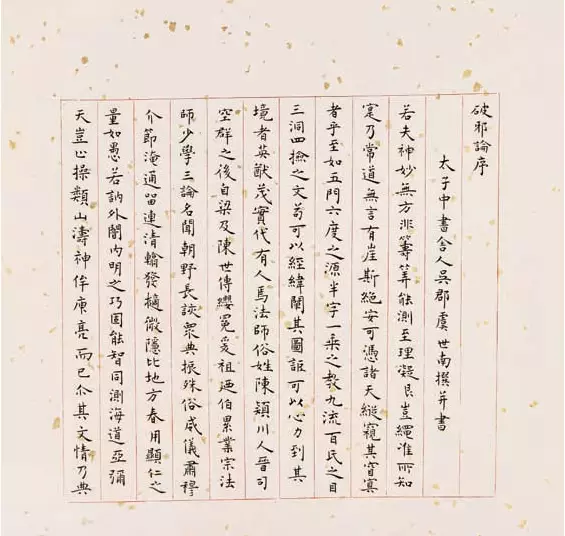 破邪論序
太子中書舍人吳郡虞世南撰并書
若夫神妙無方非籌筭能測至理凝豈繩准所知
寔乃常道無言有崖斯絕安可憑諸天縱窺其窅冥
者乎至如五門六度之源半字一乘之教九流百氏之目
三洞四撿之文苟可以經緯闡其圖詎可以心力到其
境者英猷茂實代有人焉法師俗姓陳潁川人晉司
空群之後自梁及陳世傳纓冕爰祖迺伯累業宗法
師少學三論名聞朝野長該衆典振殊俗威儀肅穆
介節淹通留連清翰發擿微隱比地方春用顯仁之
量如愚若訥外闇內明之巧固能智同測海道亞彌
天豈止操類山濤神侔庾亮而已尒其文情乃典